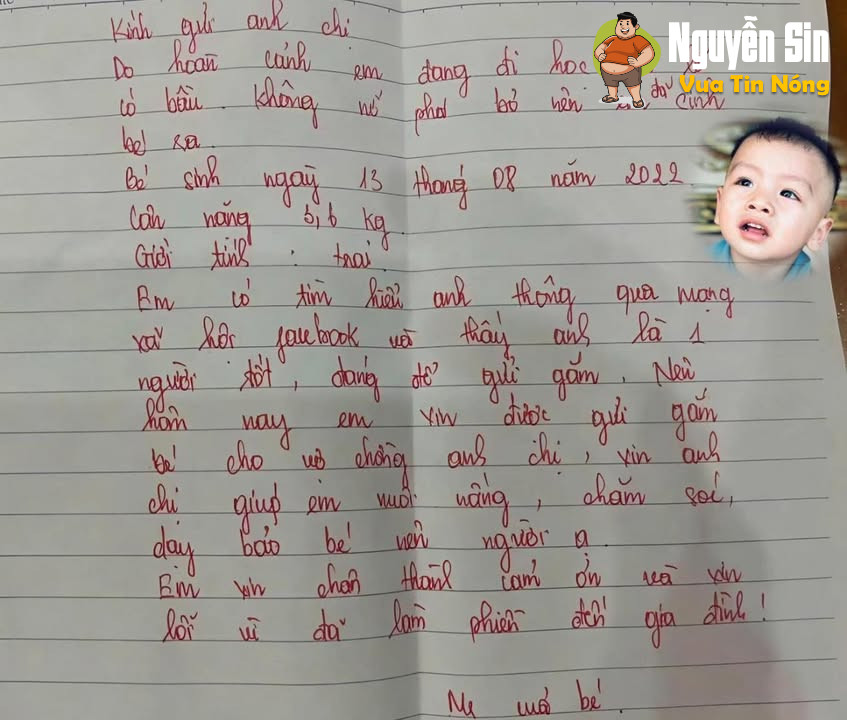 Kính gửi anh chị
Do hoàn cảnh em đang đi học
có bầu không nỡ phá bỏ nên đã sinh
bé ra.
Bé sinh ngày 13 tháng 08 năm 2022
Cân nặng 3,6 kg
Giới tính : trai
Em có tìm hiểu anh thông qua mạng
xã hội facebook và thấy anh là 1
người tốt, đáng để gửi gắm. Nên
hôm nay em xin được gửi gắm
bé cho vợ chồng anh chị, xin anh
chị giúp em nuôi nấng, chăm sóc,
dạy bảo bé nên người ạ.
Em xin chân thành cảm ơn và xin
lỗi vì đã làm phiền đến gia đình!
Mẹ của bé.
Nguyễn Sin
Vua Tin Nóng